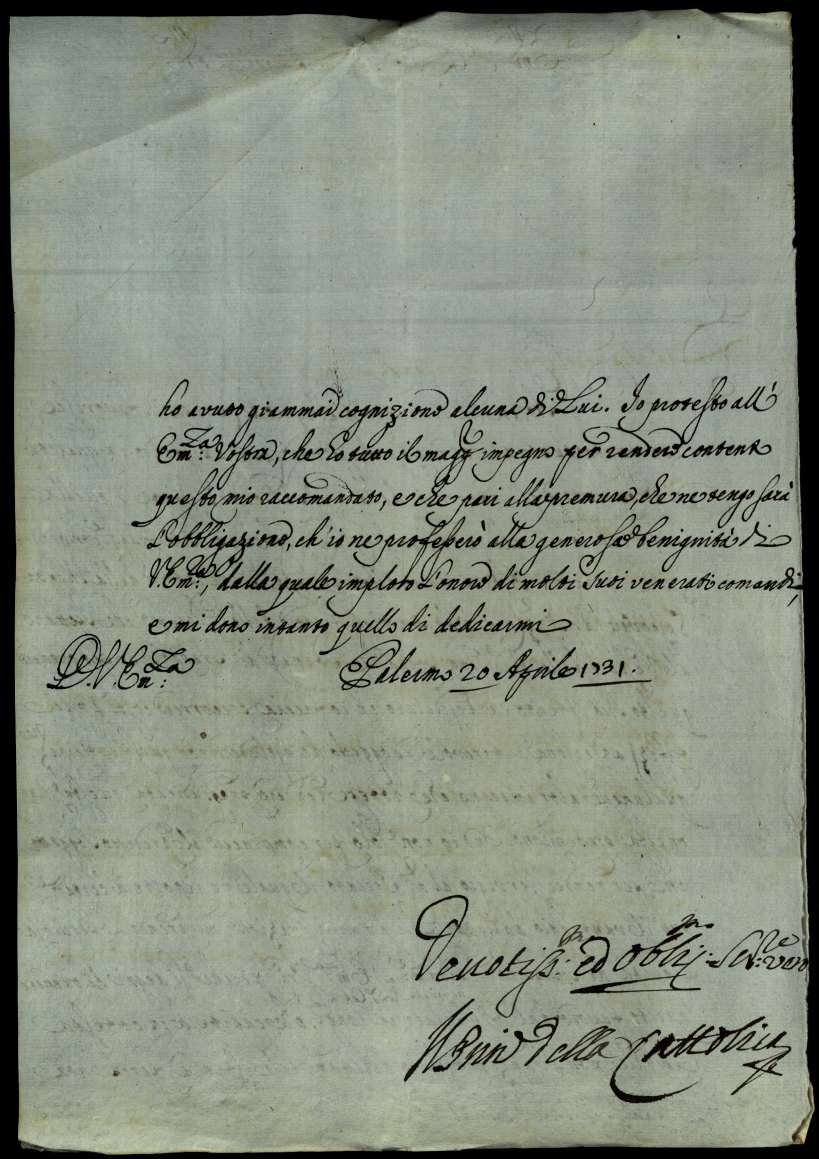 ho avuto giammai cognizione alcuna di Lui. Io protesto all'
Em.za Vostra, che ho tutto il magg.r impegno per rendere contento
questo mio raccomandato, e che pari alla premura, che ne tengo sarà
l'obbligazione, ch'io ne professerò alla generosa benignità di
V. Em.za, dalla quale imploro l'onore di molti suoi venerati comandi,
e mi dono intanto quello di dedicarmi
D. V. Em.za
Palermo 20 Aprile 1731.
Devotiss.mo ed Obblig.mo Ser.re vero
Il Prin.e della Cattolica